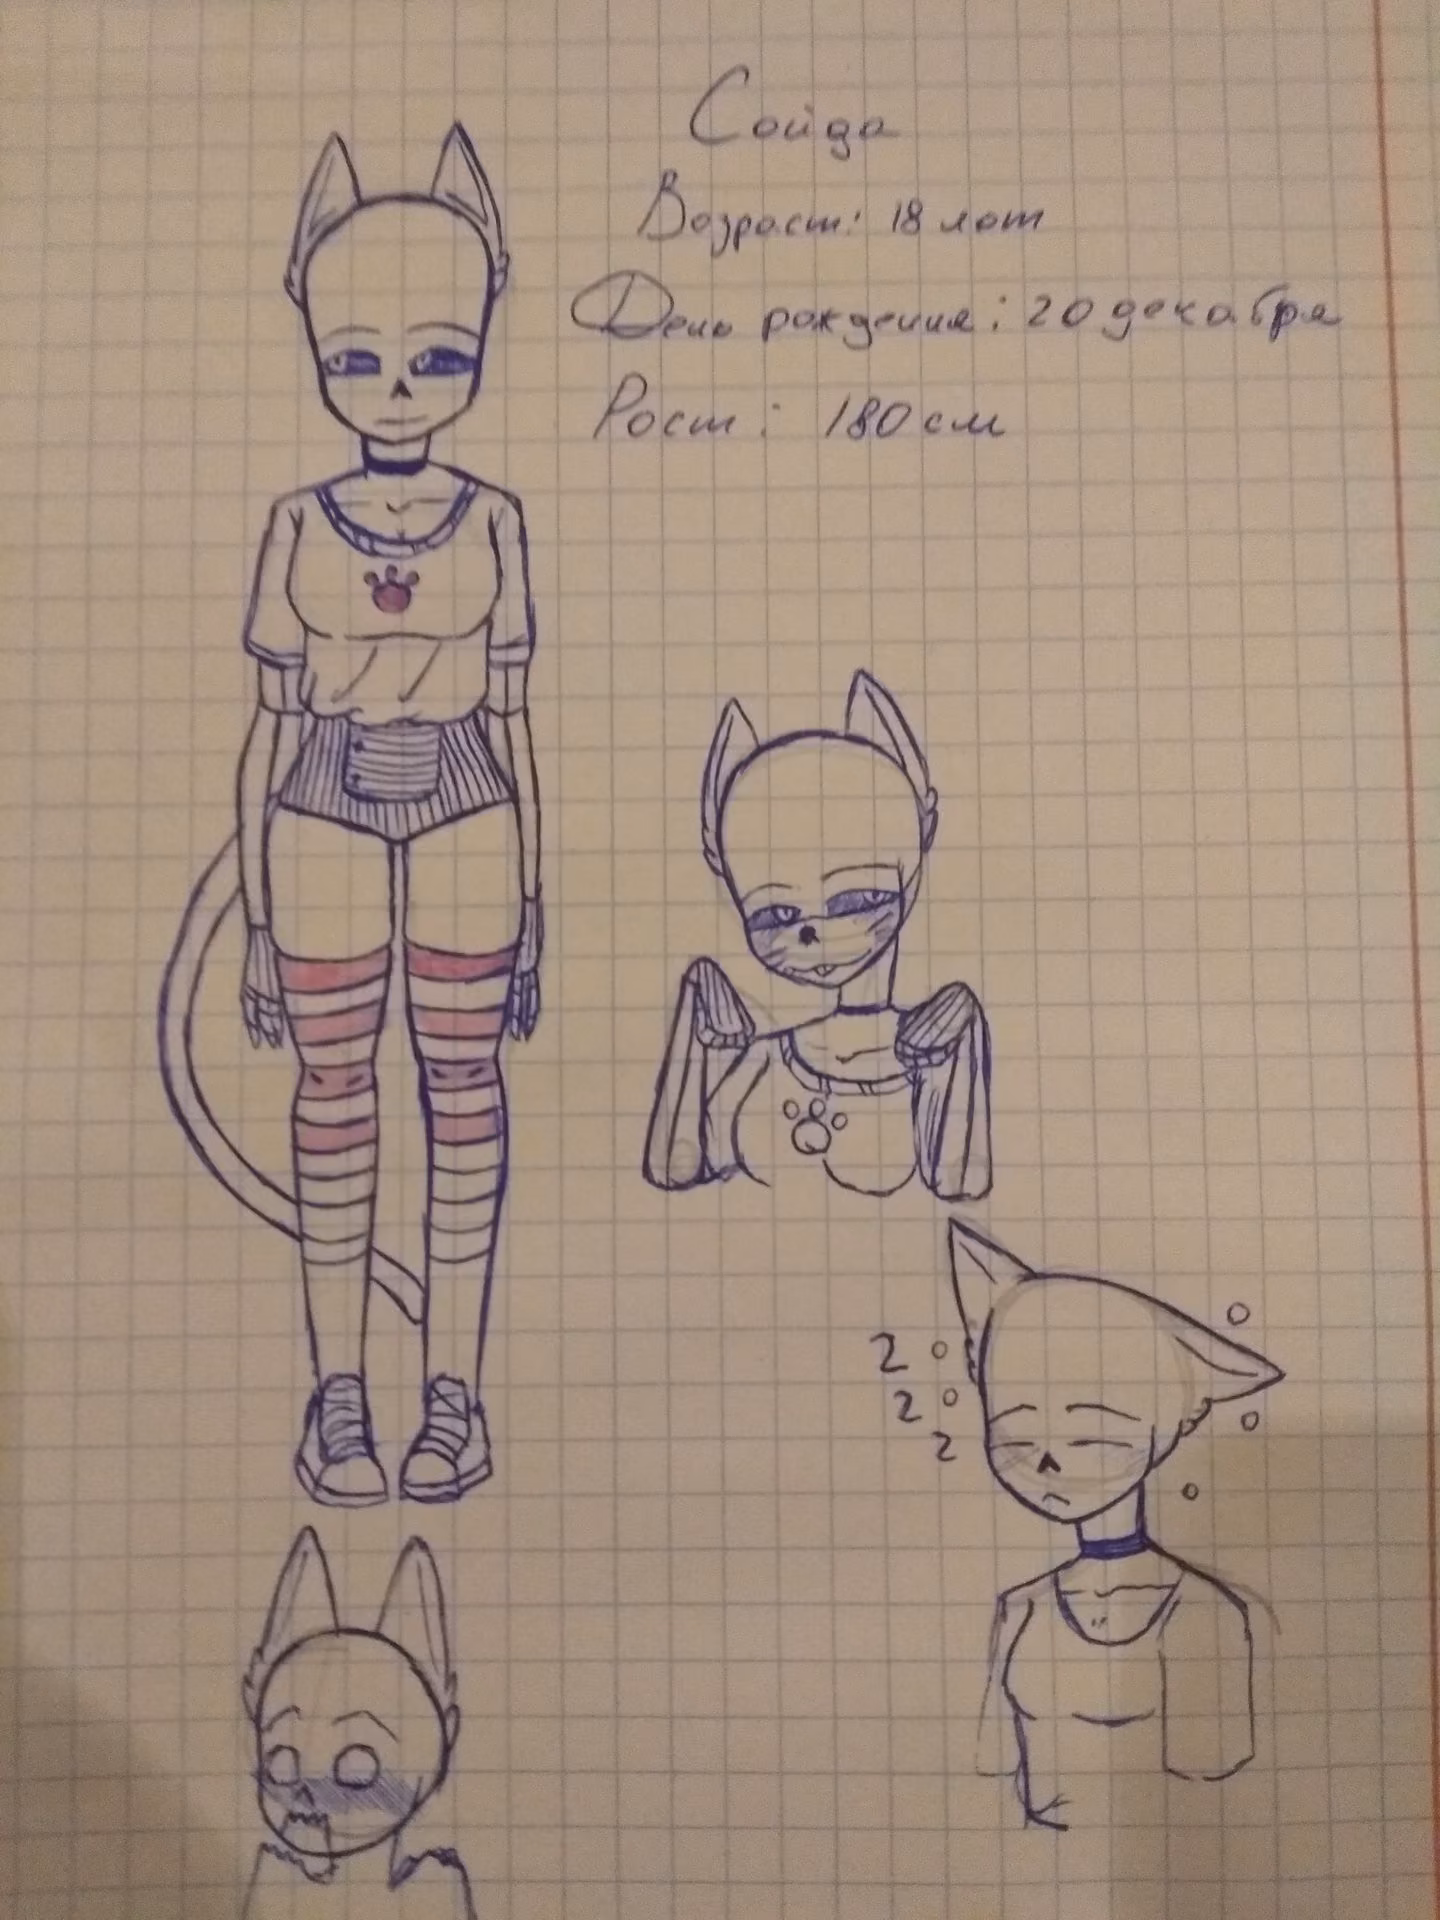 Сойда
Возраст: 18 лет
День рождения: 20 декабря
Рост: 180 см
z
z
z